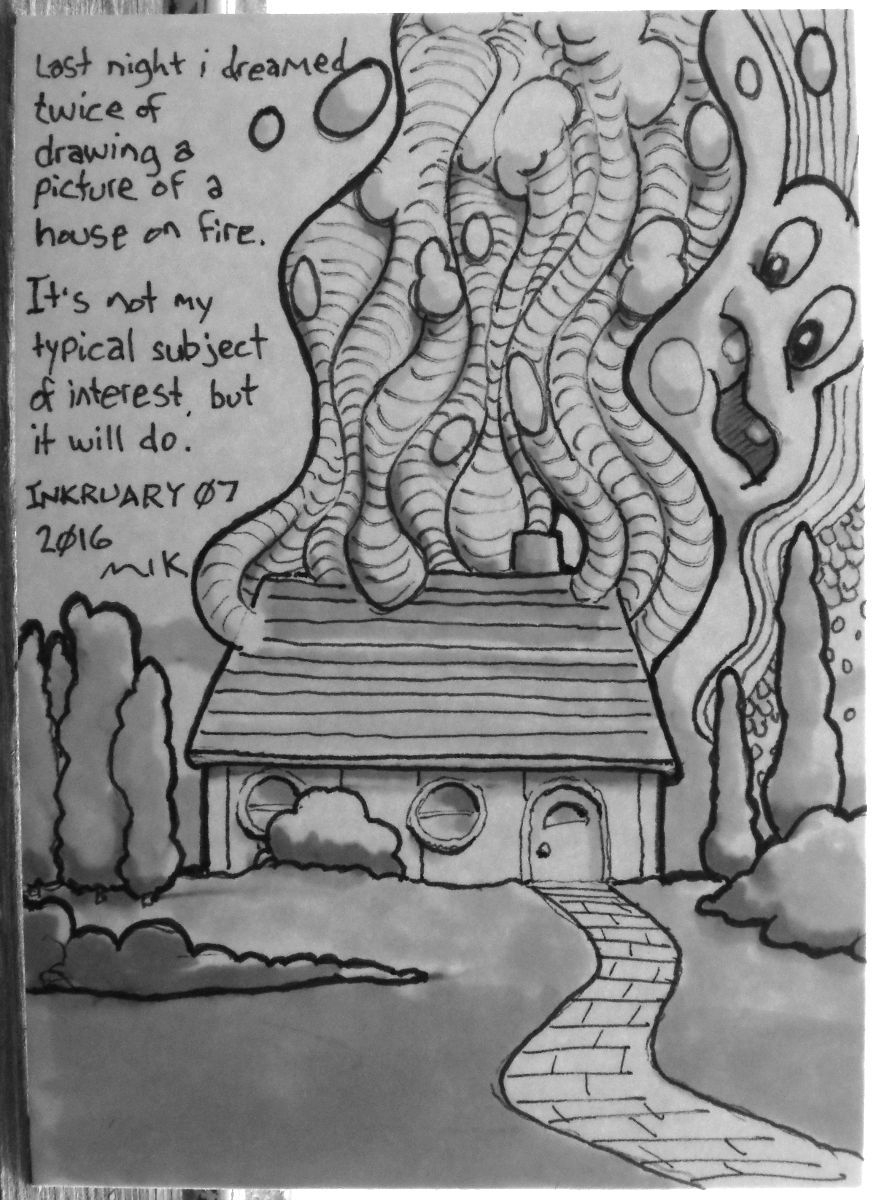 Last night i dreamed
twice of
drawing a
picture of a
house on fire.
It's not my
typical subject
of interest, but
it will do.
INKRUARY 07
2016
MIK